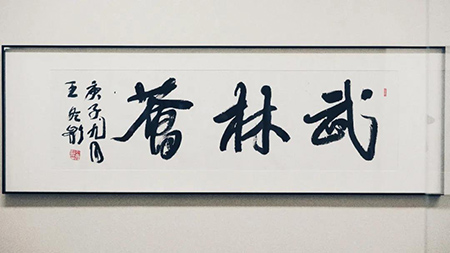 武林舊
庚子九月
王冬齡